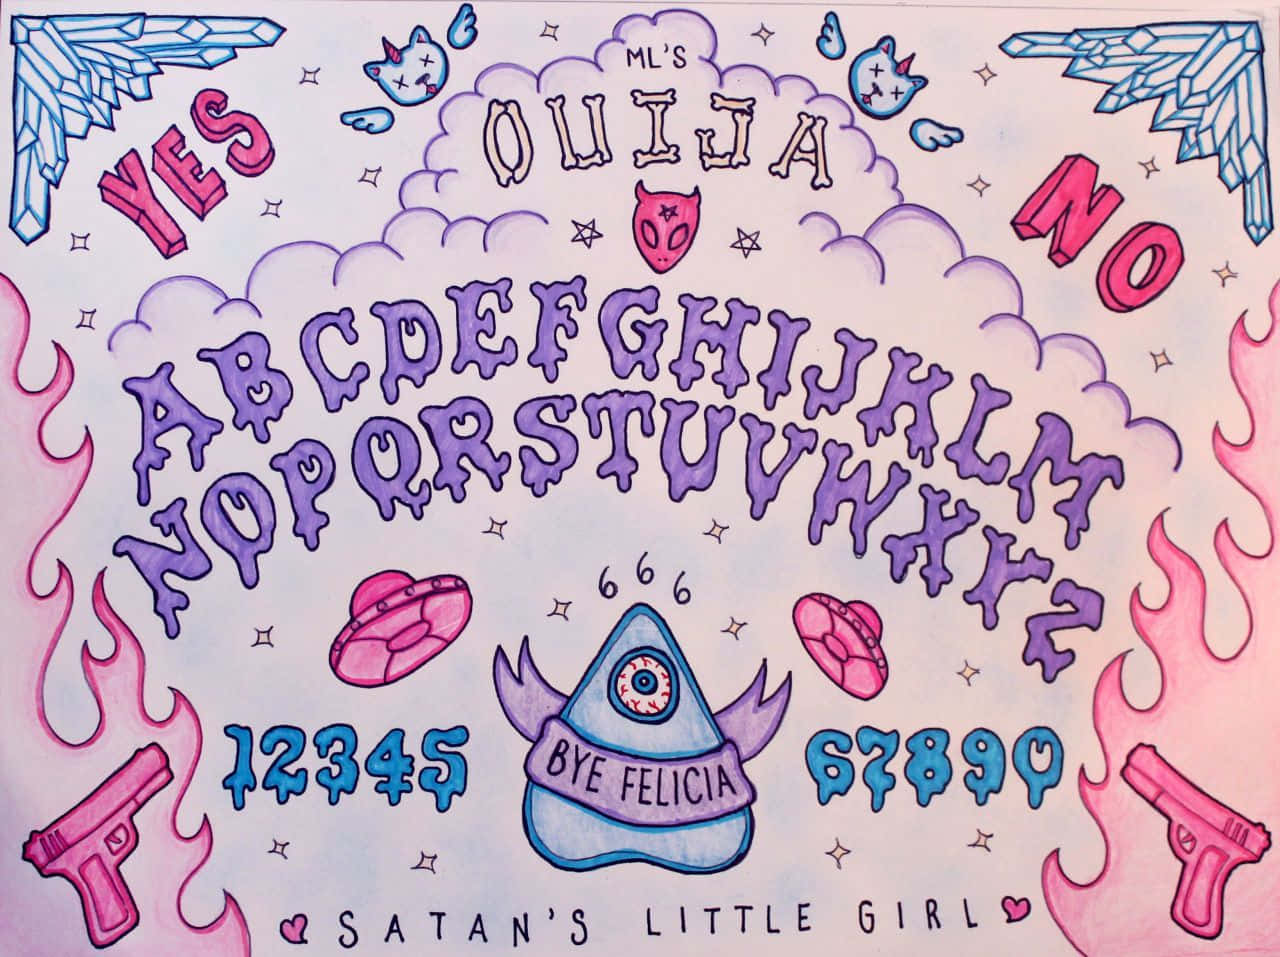 ML'S
OUIJA
YES
NO
ABCDEFGHIJKLM
NOPQRSTUVWXYZ
666
BYE FELICIA
12345
67890
SATAN'S LITTLE GIRL